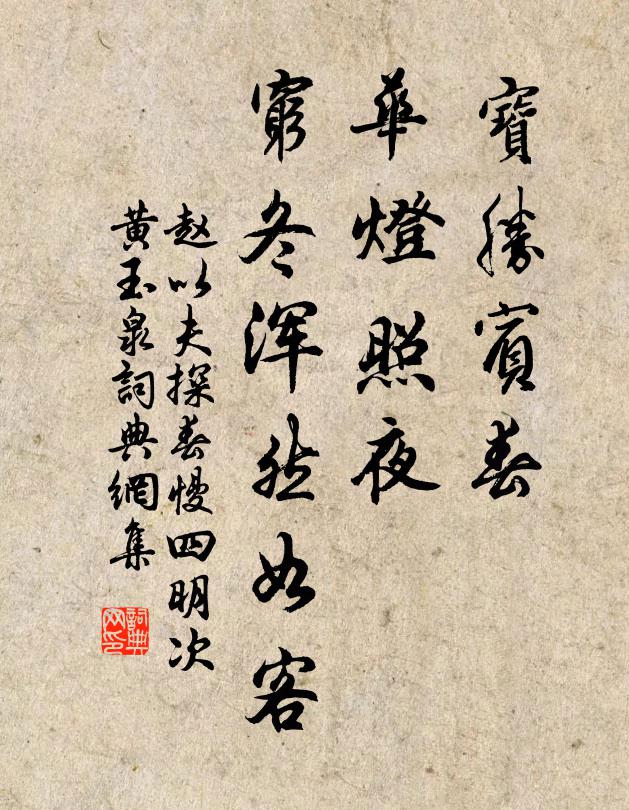 寶勝賓春
華燈照夜
窮冬渾然如客
赵以夫探春慢四明次
黄玉泉詞典網集
詞典网印